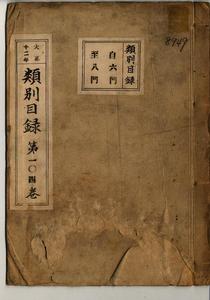 大正
十二年
類別目録
第一〇四巻
類別目録
自六門
至八門
8949